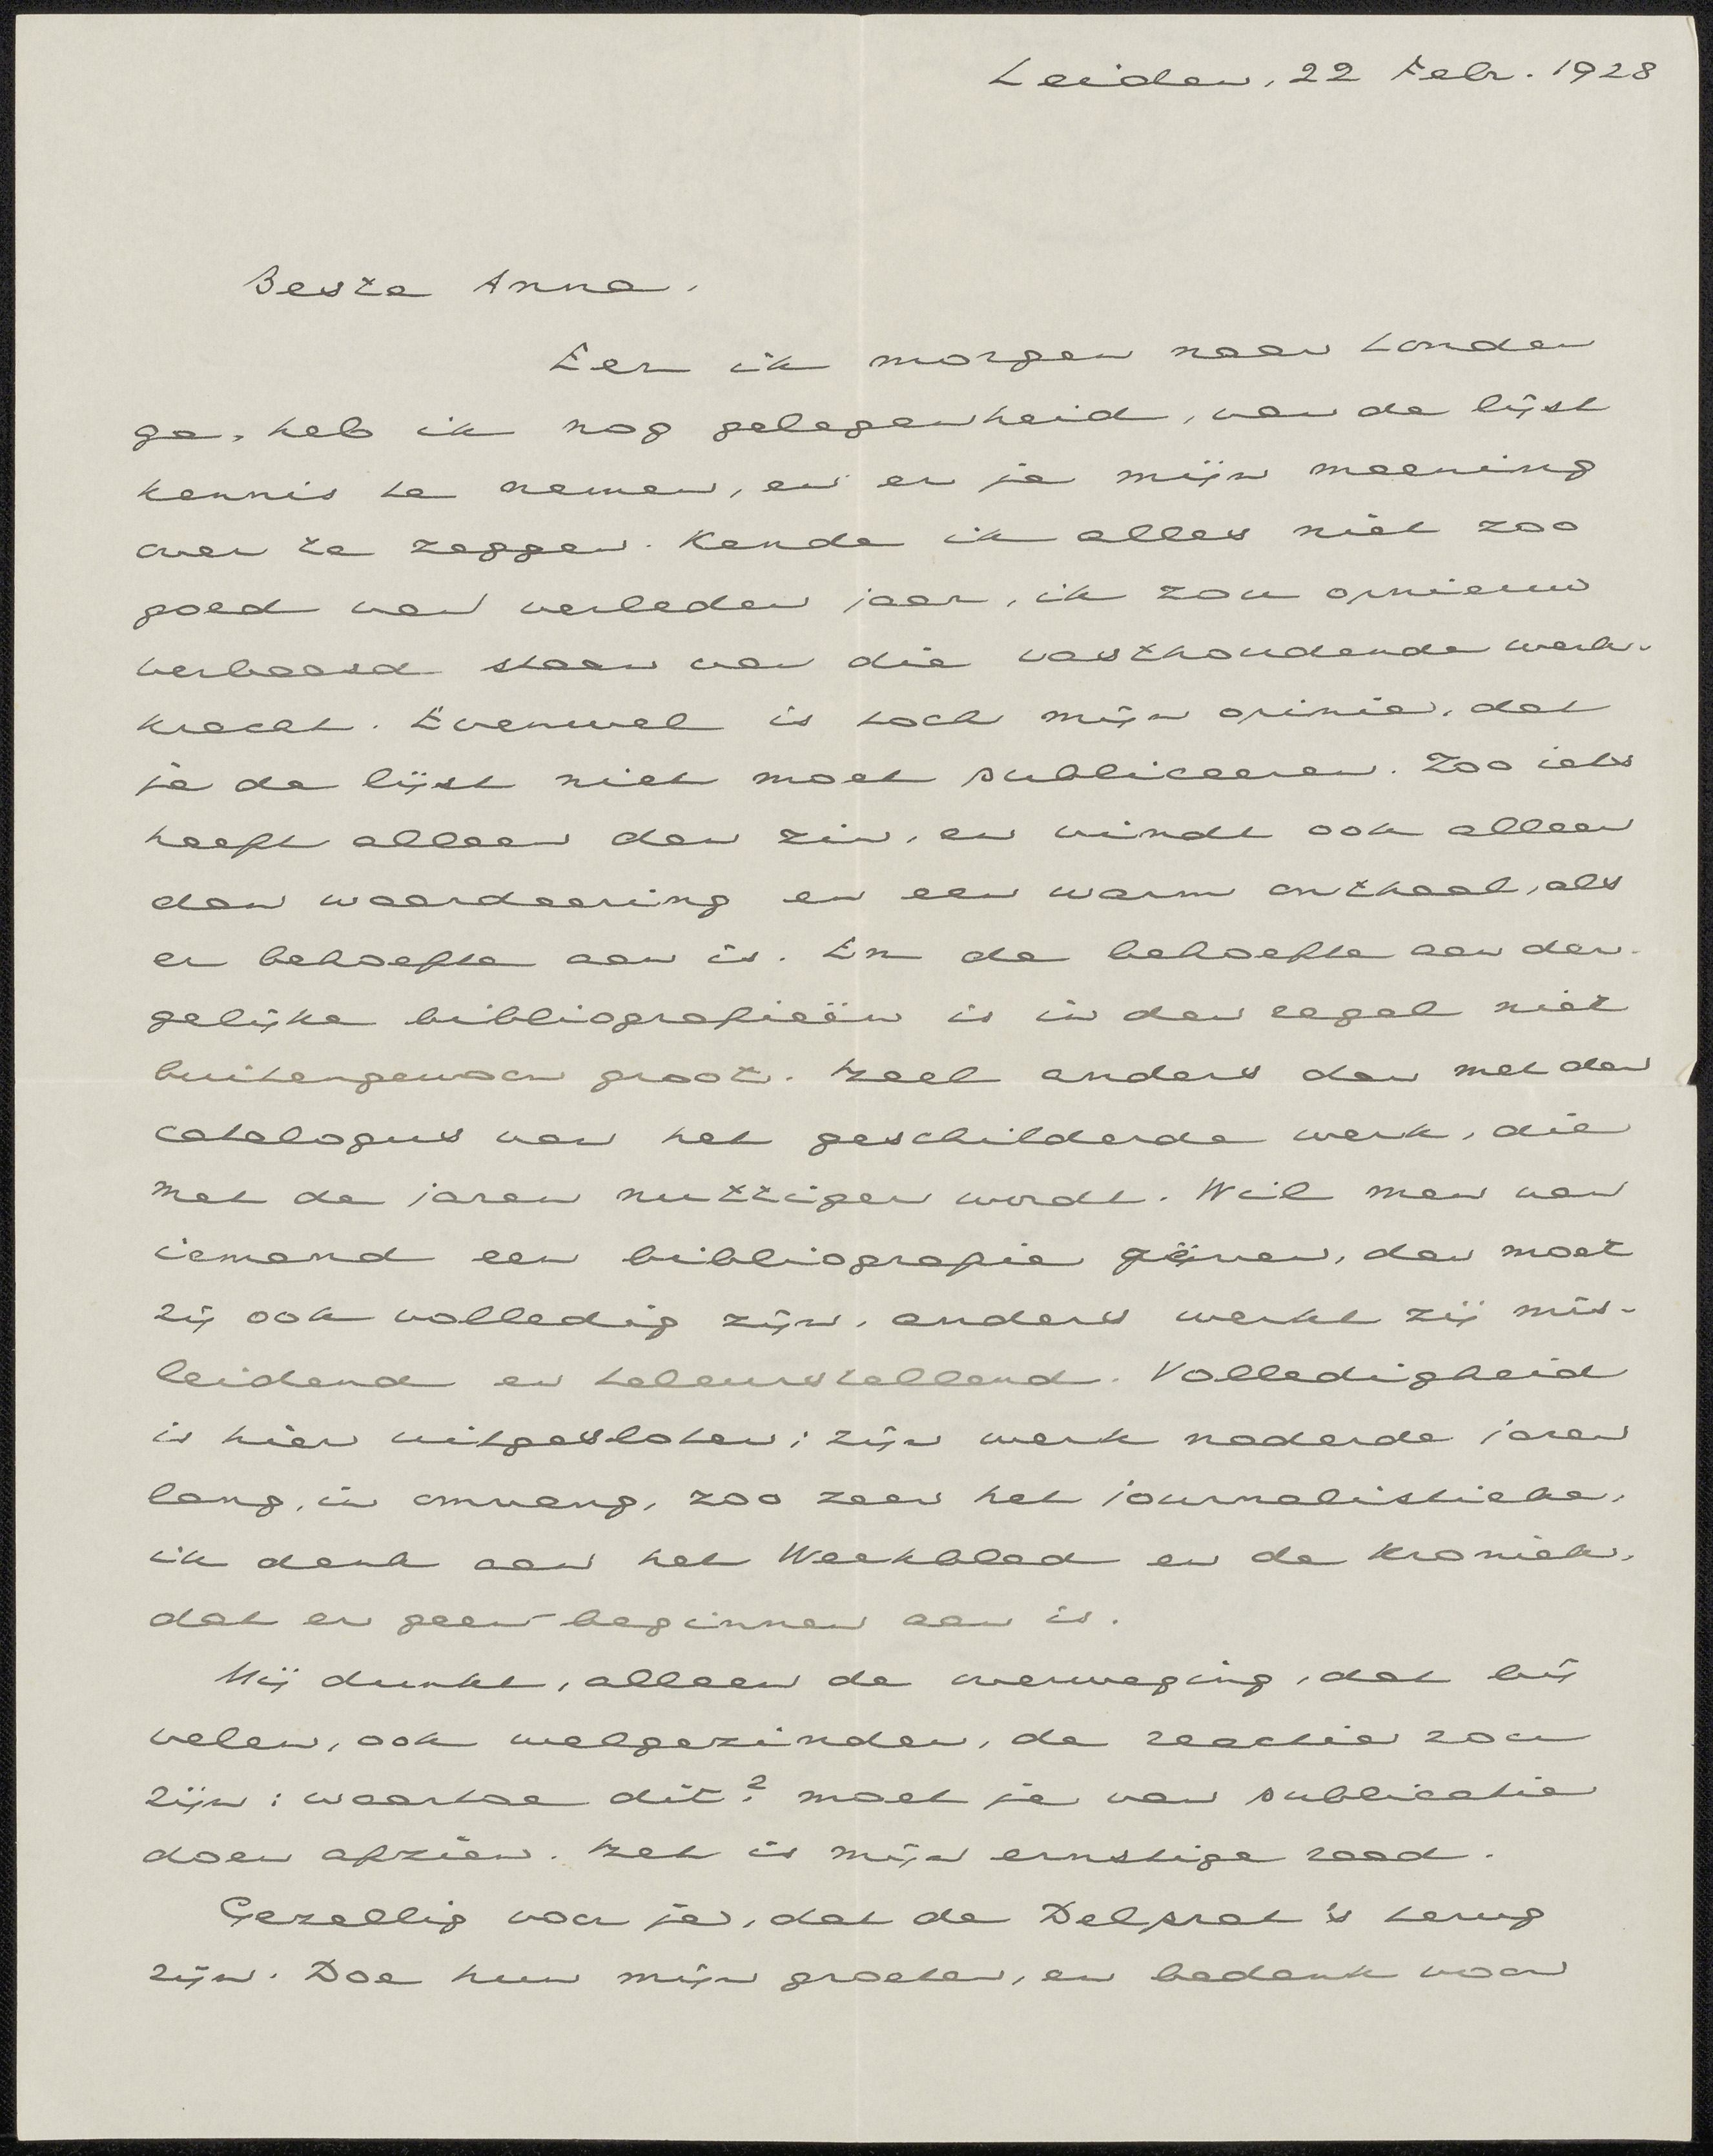 Leiden, 22 Febr. 1928
Beste Anna,
Eer ik morgen naar Londen
ga, heb ik nog gelegenheid, van de lijst
kennis te nemen, en er je mijn meening
over te zeggen. Kende ik alles niet zoo
goed van verleden jaar, ik zou opnieuw
verbaasd staan van die vasthoudende werk-
kracht. Evenwel is toch mijn opinie, dat
je de lijst niet moet publiceeren. Zoo iets
heeft alleen dan zin, en vindt ook alleen
dan waardeering en een warm onthaal, als
er behoefte aan is. En de behoefte aan der-
gelijke bibliografieën is in den regel niet
buitengewoon groot. Heel anders dan met den
catalogus van het geschilderde werk, die
met de jaren nuttiger wordt. Wil men van
iemand een bibliografie geven, dan moet
zij ook volledig zijn, anders werkt zij mis-
leidend en teleurstellend. Volledigheid
is hier uitgesloten; zijn werk naderde jaren
lang, in omvang, zoo zeer het journalistieke,
ik denk aan het Weekblad en de Kroniek,
dat er geen beginnen aan is.
Mij dunkt, alleen de overweging, dat bij
velen, ook welgezinden, de reactie zou
zijn: waartoe dit? moet je van publicatie
doen afzien. Het is mijn ernstige raad.
Gezellig voor je, dat de Delprat's terug
zijn. Doe hun mijn groeten, en bedank voor